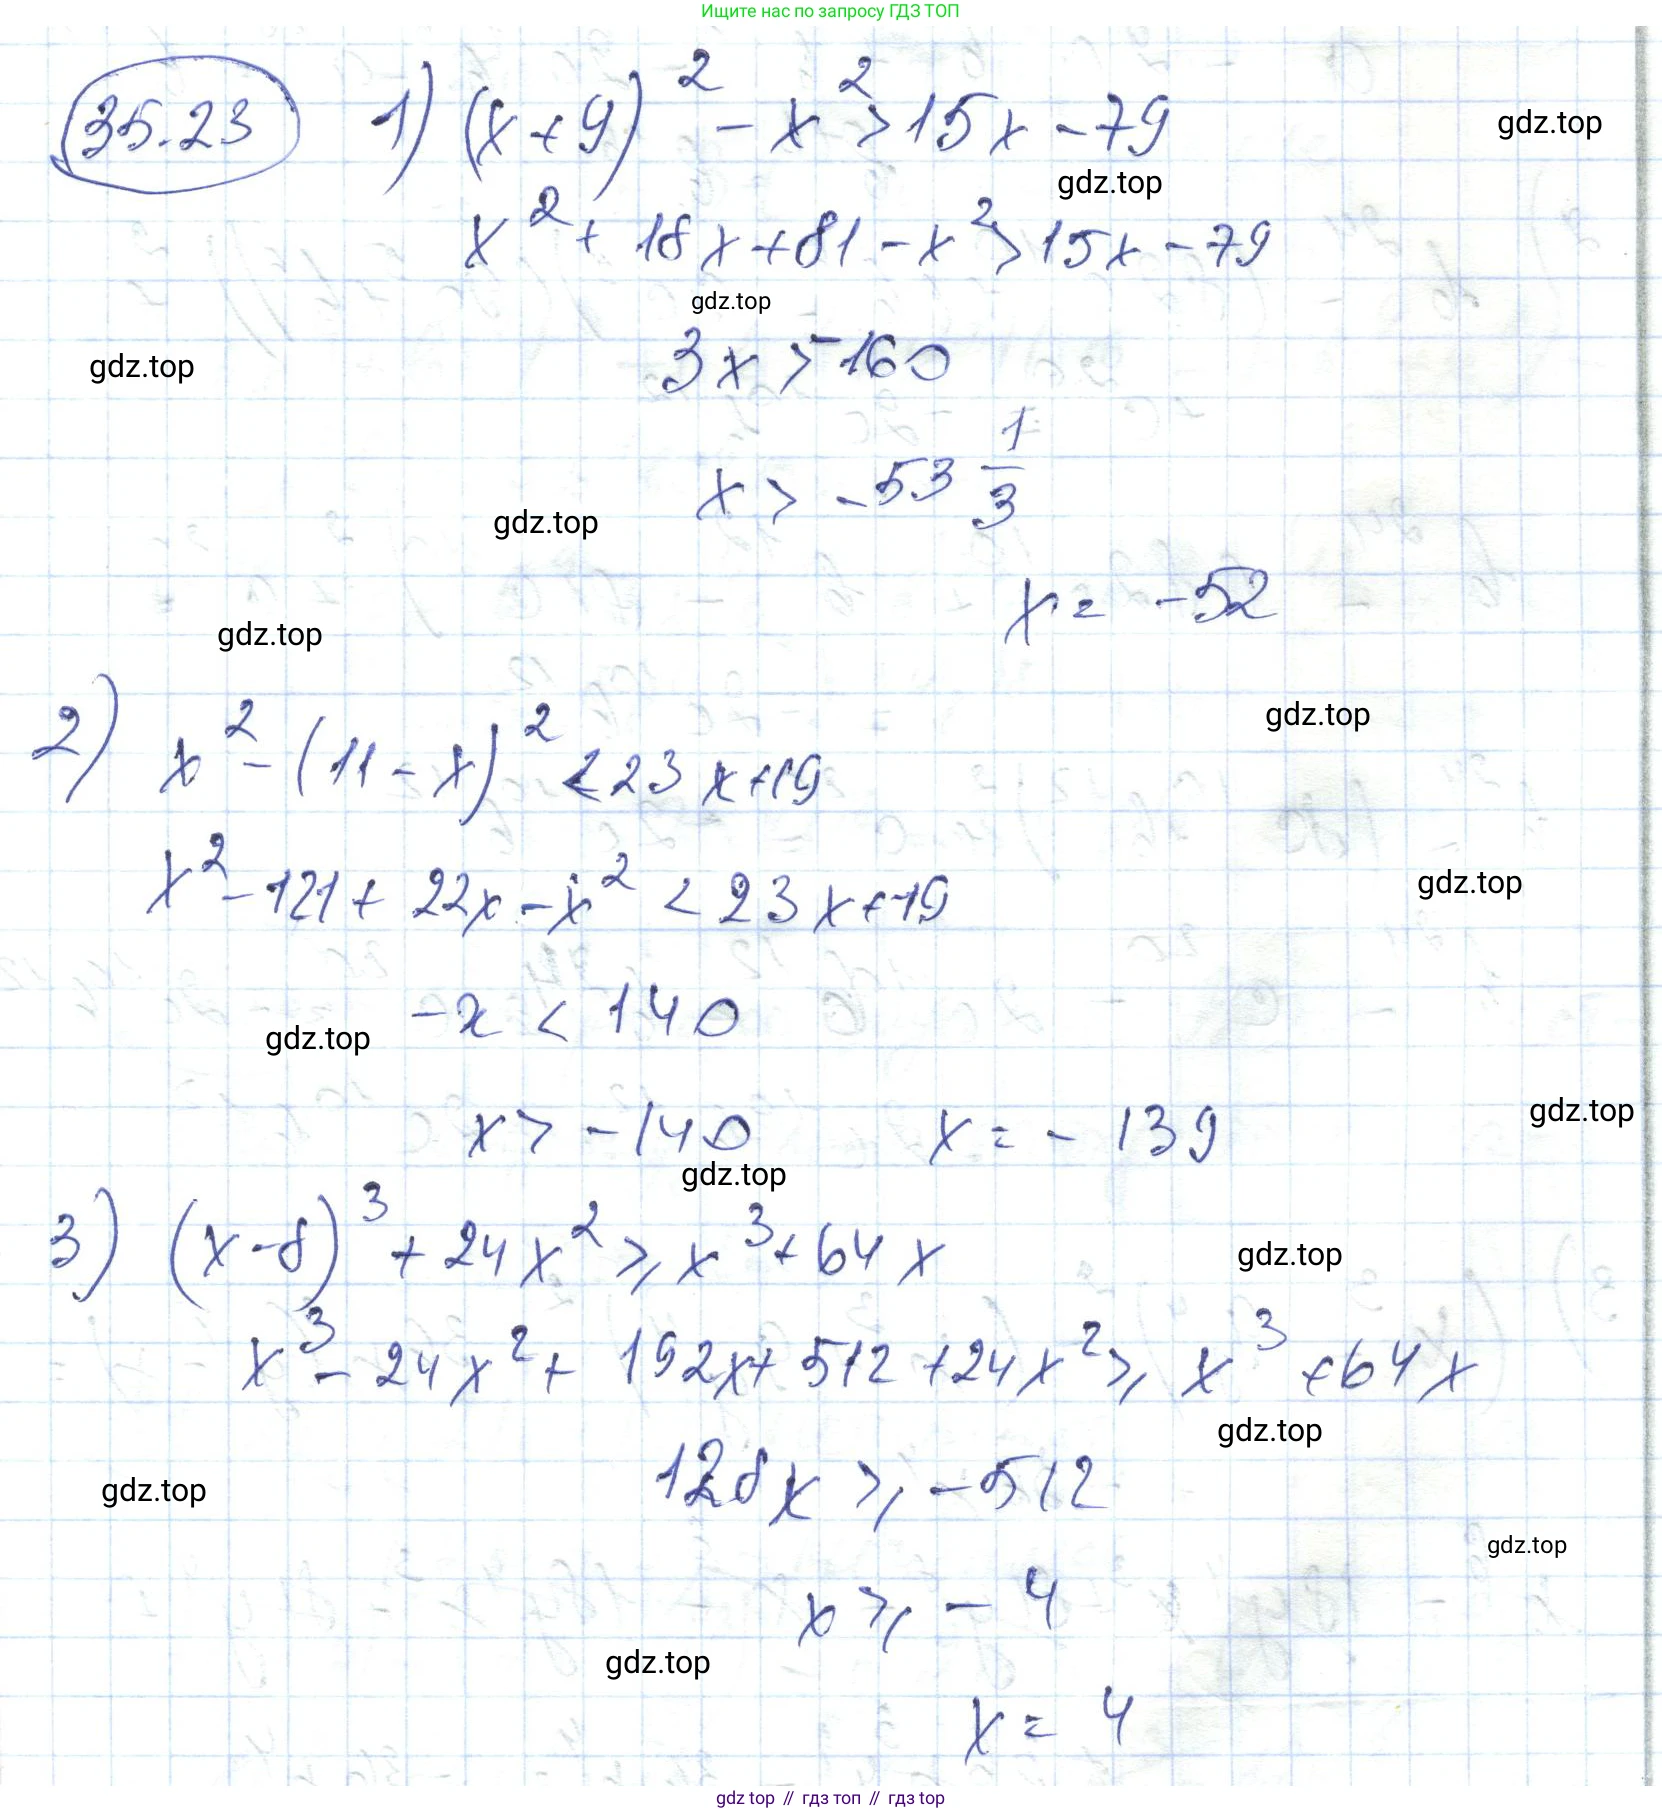 Ищите нас по запросу ГДЗ ТОП
35.23 1) (x+9)² - x² > 15x - 79
gdz.top
gdz.top
x² + 18x + 81 - x² > 15x - 79
gdz.top
3x > -160
gdz.top
x > -53 1/3
gdz.top
x = -52
gdz.top
gdz.top
2) x² - (11 - x)² < 23x + 19
x² - 121 + 22x - x² < 23x + 19
gdz.top
-x < 140
gdz.top
x > -140 x = -139
gdz.top
gdz.top
3) (x-8)³ + 24x² ⩾ x³ + 64x
gdz.top
x³ - 24x² + 192x + 512 + 24x² ⩾ x³ + 64x
gdz.top
128x ⩾ -512
gdz.top
gdz.top
x ⩾ -4
gdz.top
x = 4
gdz top // гдз топ // гдз top